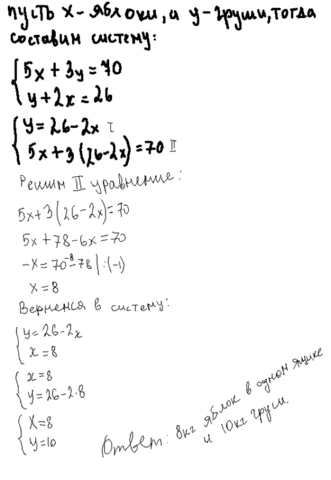 пусть x-яблоки, и y-груши, тогда
составим систему:
5x+3y=70
y+2x=26
y=26-2x I
5x+3(26-2x)=70 II
Решим II уравнение:
5x+3(26-2x)=70
5x+78-6x=70
-x=70-78 |:(-1)
-8
x=8
Вернемся в систему:
y=26-2x
x=8
x=8
y=26-2·8
x=8
y=10
Ответ: 8кг яблок в одном ящике
и 10кг груш.